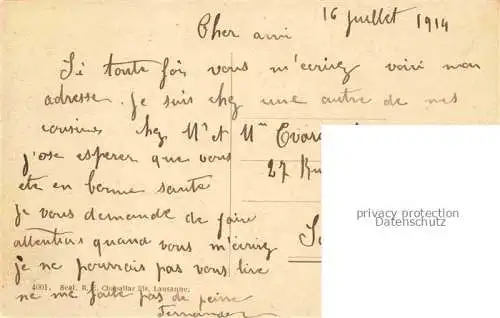 16 juillet 1914
Cher ami
Si toute fois vous m'écrivez voici mon
adresse. Je suis chez une autre de mes
cousines chez Mr et Mme
j'ose esperer que vous
27
ete en bonne sante
je vous demande de faire
attention quand vous m'écrivez
je ne pourrais pas vous lire
ne me faite pas de peine
Fernande
4001. Scat. R. E. Chapallaz fils, Lausanne.
privacy protection
Datenschutz